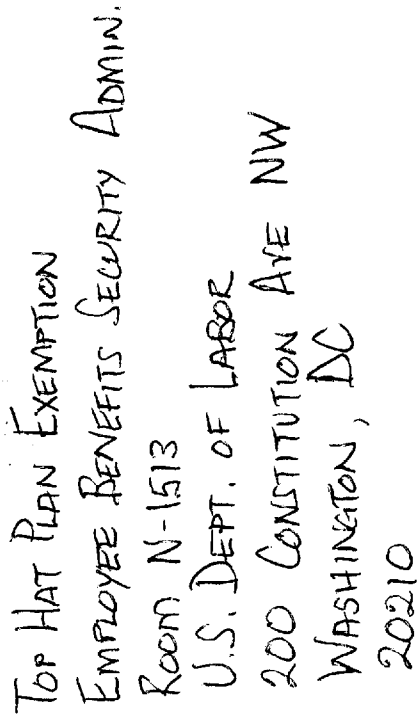 Top Hat Plan Exemption
Employee Benefits Security Admin.
Room N-1513
U.S. Dept. of Labor
200 Constitution Ave NW
Washington, DC
20210